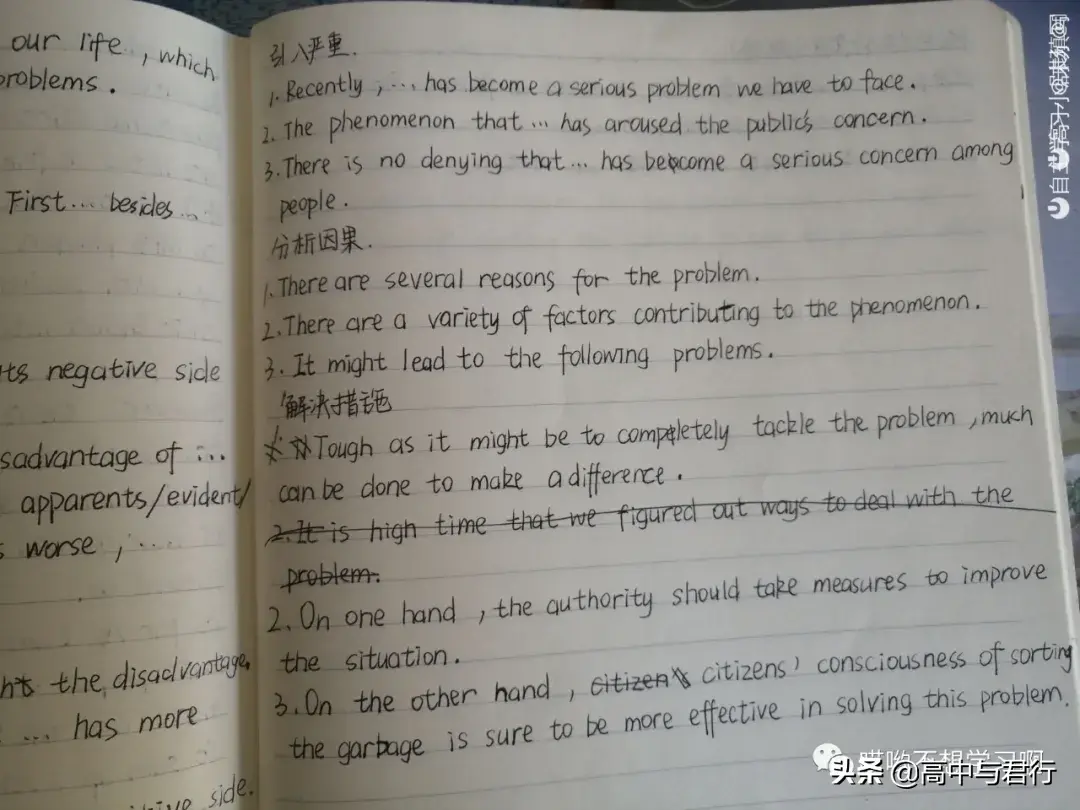 our life, which
problems.
First... besides...
its negative side
sadvantage of ...
apparents/evident/
s worse, ...
the disadvantage.
... has more
side.
引入严重.
1. Recently, ... has become a serious problem we have to face.
2. The phenomenon that ... has aroused the public's concern.
3. There is no denying that ... has become a serious concern among
people.
分析因果.
1. There are several reasons for the problem.
2. There are a variety of factors contributing to the phenomenon.
3. It might lead to the following problems.
解决措施
1. Tough as it might be to completely tackle the problem, much
can be done to make a difference.
2. It is high time that we figured out ways to deal with the
problem.
2. On one hand, the authority should take measures to improve
the situation.
3. On the other hand, citizen's citizens' consciousness of sorting
the garbage is sure to be more effective in solving this problem.
哎哟不想学习啊
头条 @高中与君行